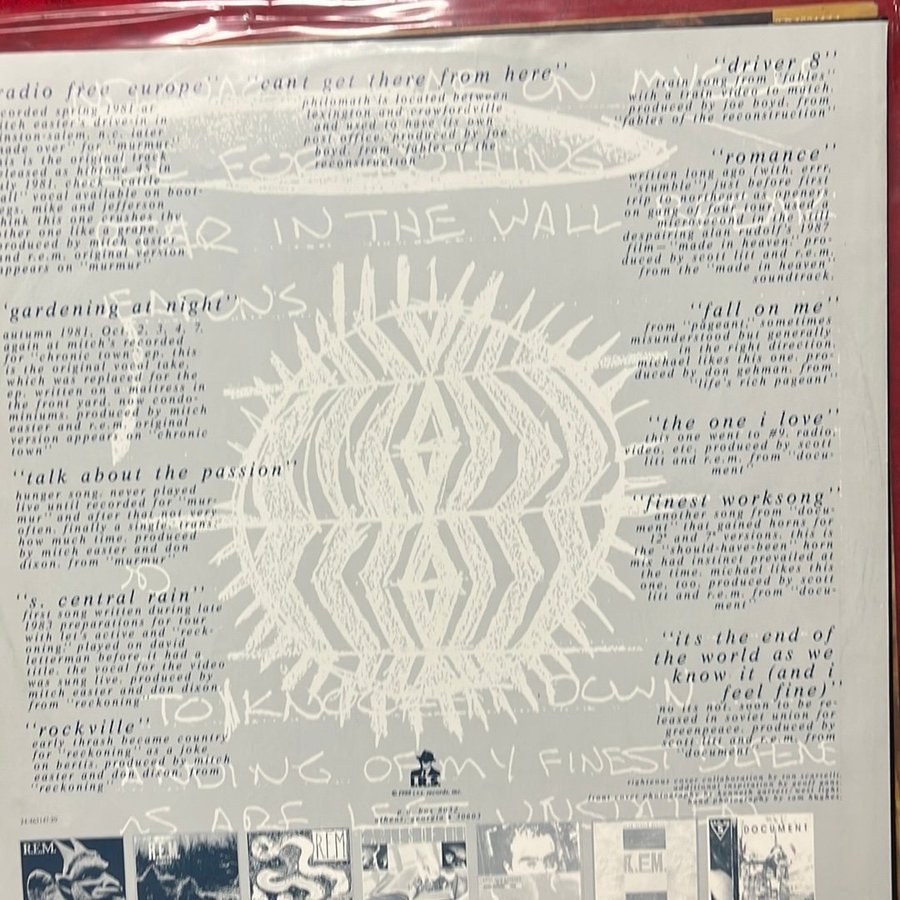 "radio free europe"
spring 1981 at
mitch easter's drive-in
winston-salem, n.c. later
"murmur"
this is the original
released as hib-tone 45 in
july 1981. check cattle
vocal available on boot-
legs. mike and jefferson
think this one crushes the
other one like a grape.
produced by mitch easter
and r.e.m. original version
appears on "murmur"
"gardening at night"
autumn 1981. Oct. 2, 3, 4, 7.
again at mitch's. recorded
for "chronic town" ep. this
is the original vocal take,
which was replaced for the
ep. written on a mattress in
the front yard. now condo-
miniums. produced by mitch
easter and r.e.m. original
version appears on "chronic
town"
"talk about the passion"
hunger song. never played
live until recorded for "mur-
mur" and after that not very
often. finally a single.
how much time. produced
by mitch easter and don
dixon. from "murmur"
"s. central rain"
first song written during late
1983 preparations for tour
with let's active and "reck-
oning." played on david
letterman before it had a
title. the vocal for the video
was sung live. produced by
mitch easter and don dixon.
from "reckoning"
"rockville"
early thrash become country
for "reckoning" as a joke
on bertis. produced by mitch
easter and don dixon. from
"reckoning"
"cant get there from here"
philomath is located between
lexington and crawfordville
and used to have its own
post office. produced by joe
boyd. from "fables of the
reconstruction"
"driver 8"
train song from "fables"
with a train video to match.
produced by joe boyd. from
"fables of the reconstruction"
"romance"
written long ago (with, err,
"stumble") just before first
trip northeast as openers
on gang of four tour.
despairing alan rudolf's 1987
film "made in heaven." pro-
duced by scott litt and r.e.m.
from the "made in heaven"
soundtrack.
"fall on me"
from "pageant." sometimes
misunderstood but generally
in the right direction
michael likes this one. pro-
duced by don gehman. from
"life's rich pageant"
"the one i love"
this one went to #9. radio,
video, etc. produced by scott
litt and r.e.m. from "docu-
ment"
"finest worksong"
another song from "docu-
ment" that gained horns for
12" and 7" versions. this is
the "should-have-been" horn
mix had instinct prevailed at
the time. michael likes this
one, too. produced by scott
litt and r.e.m. from "docu-
ment"
"its the end of
the world as we
know it (and i
feel fine)"
no its not. soon to be re-
leased in soviet union for
greenpeace. produced by
scott litt and r.e.m. from
"document"
ON MY
FOR NOTHING
IN THE WALL
TO KNOCK DOWN
OF MY FINEST DEFENE
AS ARE LEFT
© 1988 i.r.s. records, inc.
p.o. box 8032
athens, georgia 30603
righteous cover collaboration by ron scarselli
R.E.M.
R.E.M.
REM
R.E.M.
DOCUMENT